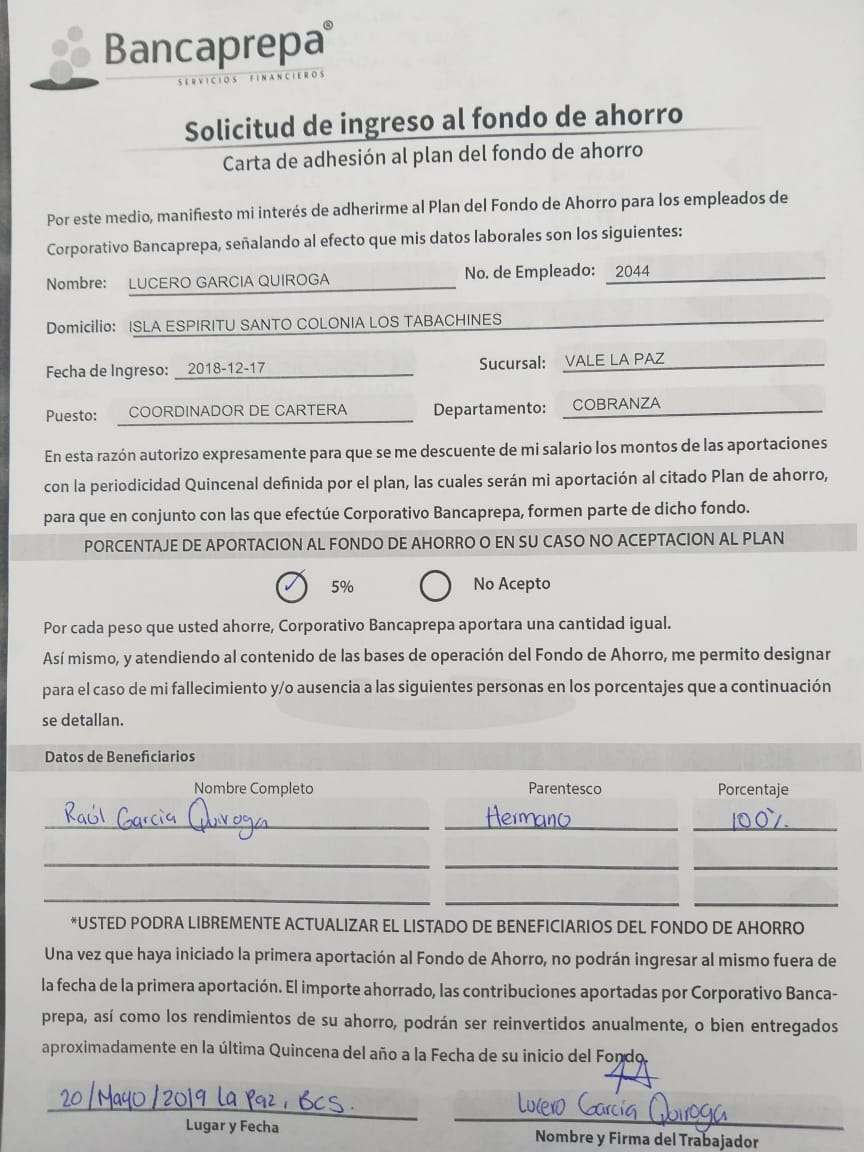 Bancaprepa®
SERVICIOS FINANCIEROS
Solicitud de ingreso al fondo de ahorro
Carta de adhesión al plan del fondo de ahorro
Por este medio, manifiesto mi interés de adherirme al Plan del Fondo de Ahorro para los empleados de
Corporativo Bancaprepa, señalando al efecto que mis datos laborales son los siguientes:
Nombre: LUCERO GARCIA QUIROGA No. de Empleado: 2044
Domicilio: ISLA ESPIRITU SANTO COLONIA LOS TABACHINES
Fecha de Ingreso: 2018-12-17 Sucursal: VALE LA PAZ
Puesto: COORDINADOR DE CARTERA Departamento: COBRANZA
En esta razón autorizo expresamente para que se me descuente de mi salario los montos de las aportaciones
con la periodicidad Quincenal definida por el plan, las cuales serán mi aportación al citado Plan de ahorro,
para que en conjunto con las que efectúe Corporativo Bancaprepa, formen parte de dicho fondo.
PORCENTAJE DE APORTACION AL FONDO DE AHORRO O EN SU CASO NO ACEPTACION AL PLAN
5% No Acepto
Por cada peso que usted ahorre, Corporativo Bancaprepa aportara una cantidad igual.
Así mismo, y atendiendo al contenido de las bases de operación del Fondo de Ahorro, me permito designar
para el caso de mi fallecimiento y/o ausencia a las siguientes personas en los porcentajes que a continuación
se detallan.
Datos de Beneficiarios
Nombre Completo Parentesco Porcentaje
Raúl Garcia Quiroga Hermano 100%
*USTED PODRA LIBREMENTE ACTUALIZAR EL LISTADO DE BENEFICIARIOS DEL FONDO DE AHORRO
Una vez que haya iniciado la primera aportación al Fondo de Ahorro, no podrán ingresar al mismo fuera de
la fecha de la primera aportación. El importe ahorrado, las contribuciones aportadas por Corporativo Banca-
prepa, así como los rendimientos de su ahorro, podrán ser reinvertidos anualmente, o bien entregados
aproximadamente en la última Quincena del año a la Fecha de su inicio del Fondo.
20/Mayo/2019 La Paz, BCS. Lucero Garcia Quiroga
Lugar y Fecha Nombre y Firma del Trabajador